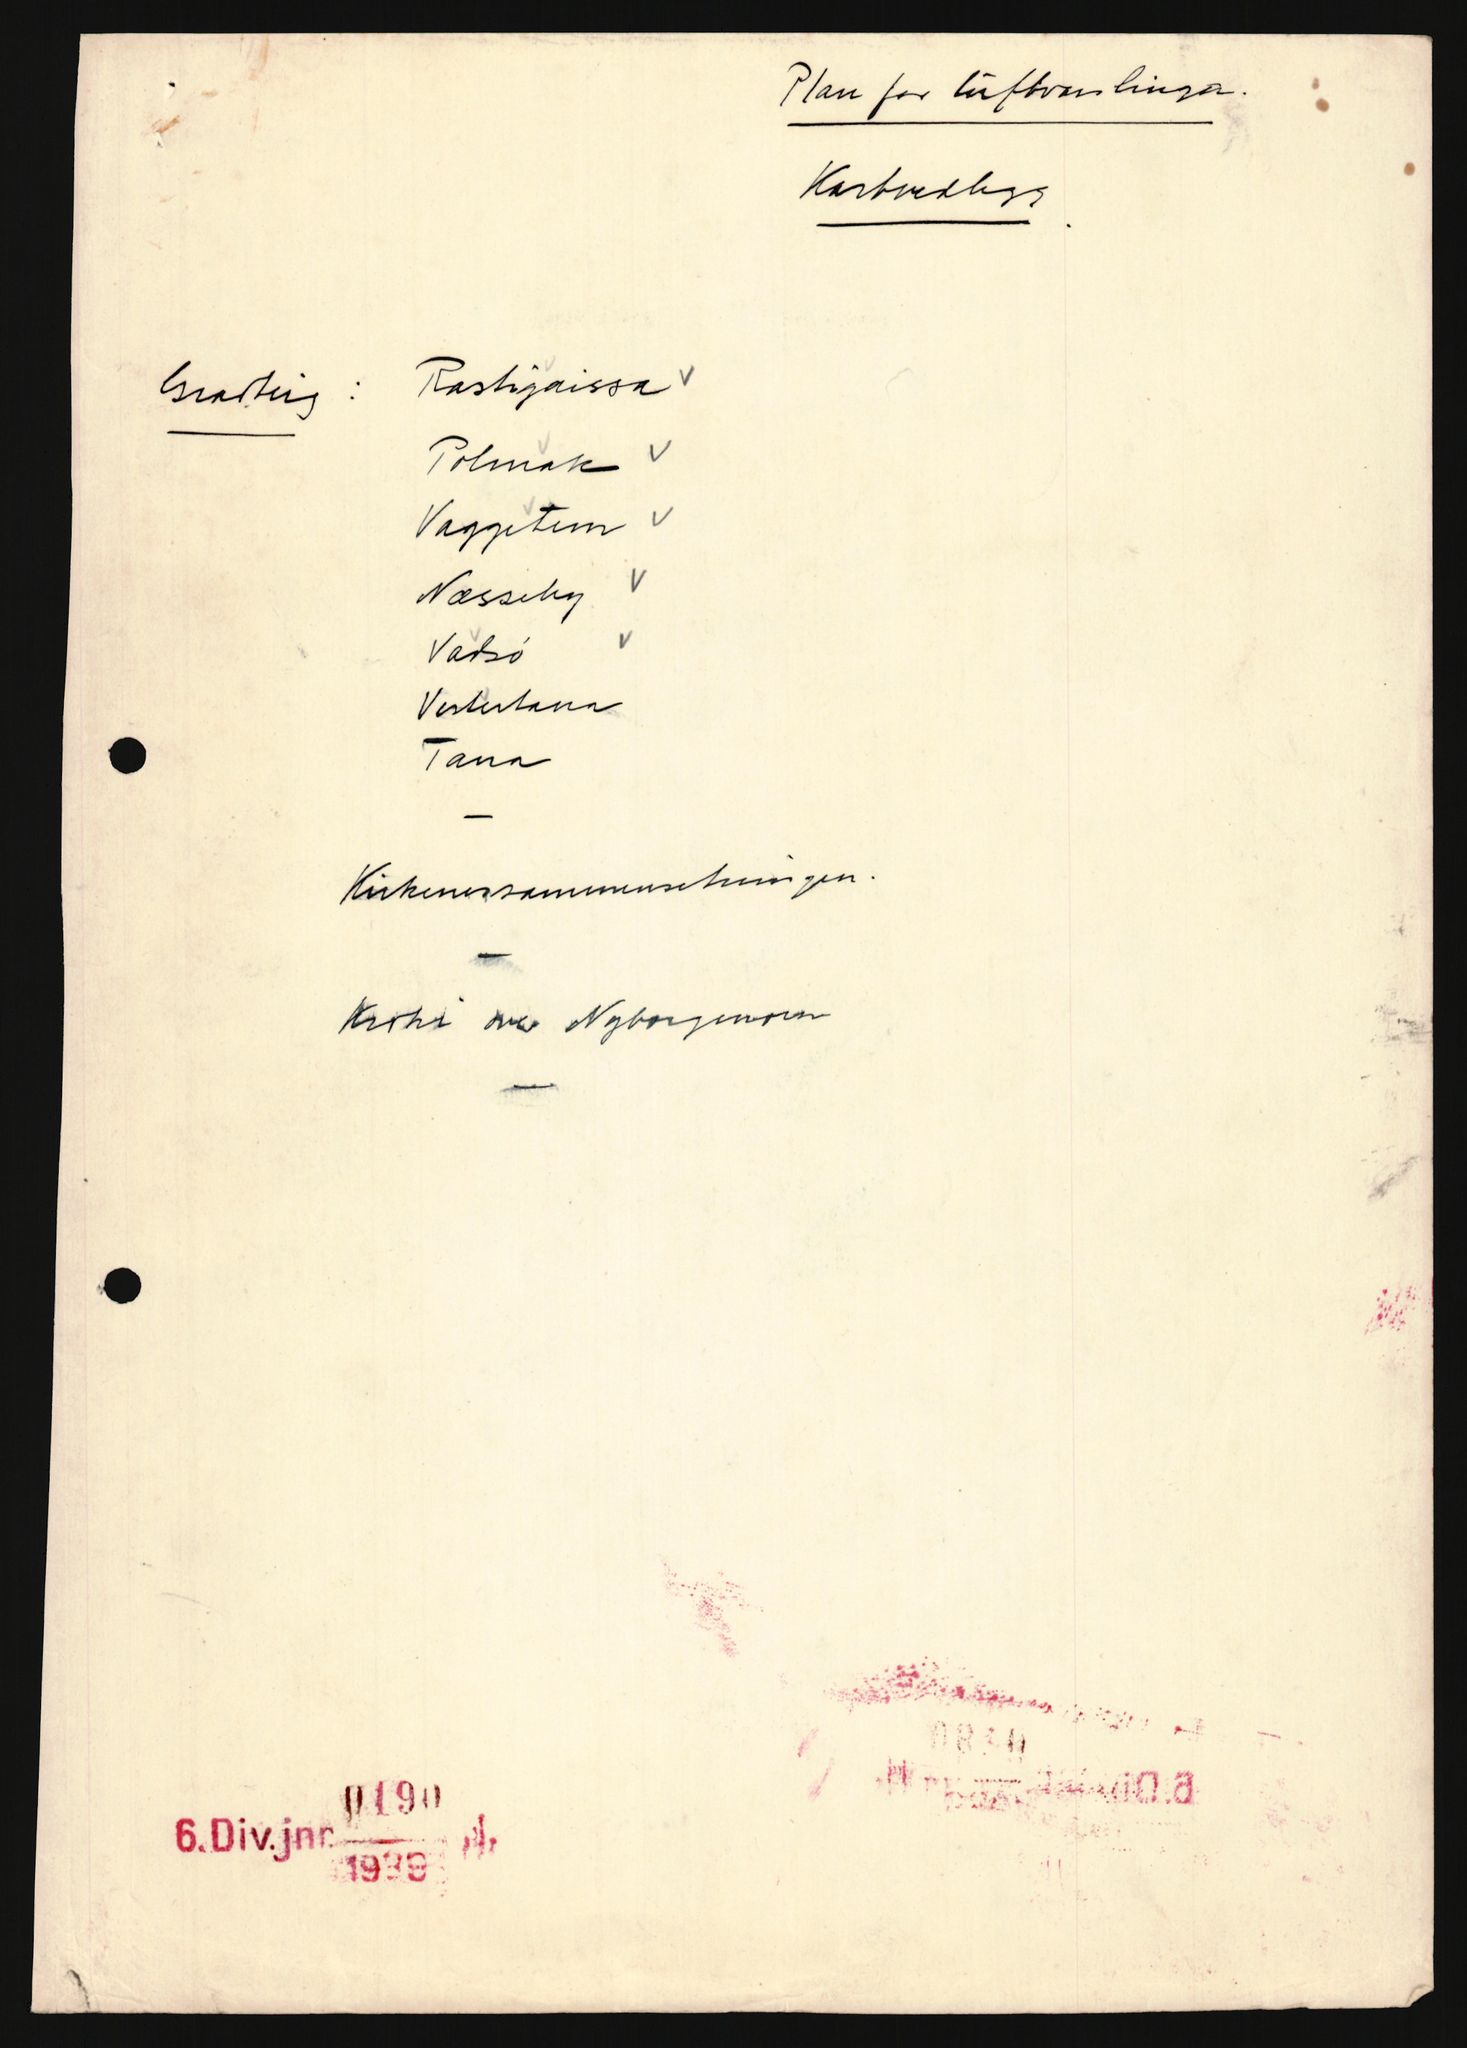 Plan for luftvarslinga.
Kartvedlegg.
Gradteig : Rastigaissa v
Polmak v
Vaggetem v
Næsseby v
Vadsö v
Vestertana
Tana
—
Kirkenessammensetningen.
—
Kroki over Nyborgmoen
—
6.Div.jnr. 0190
1939